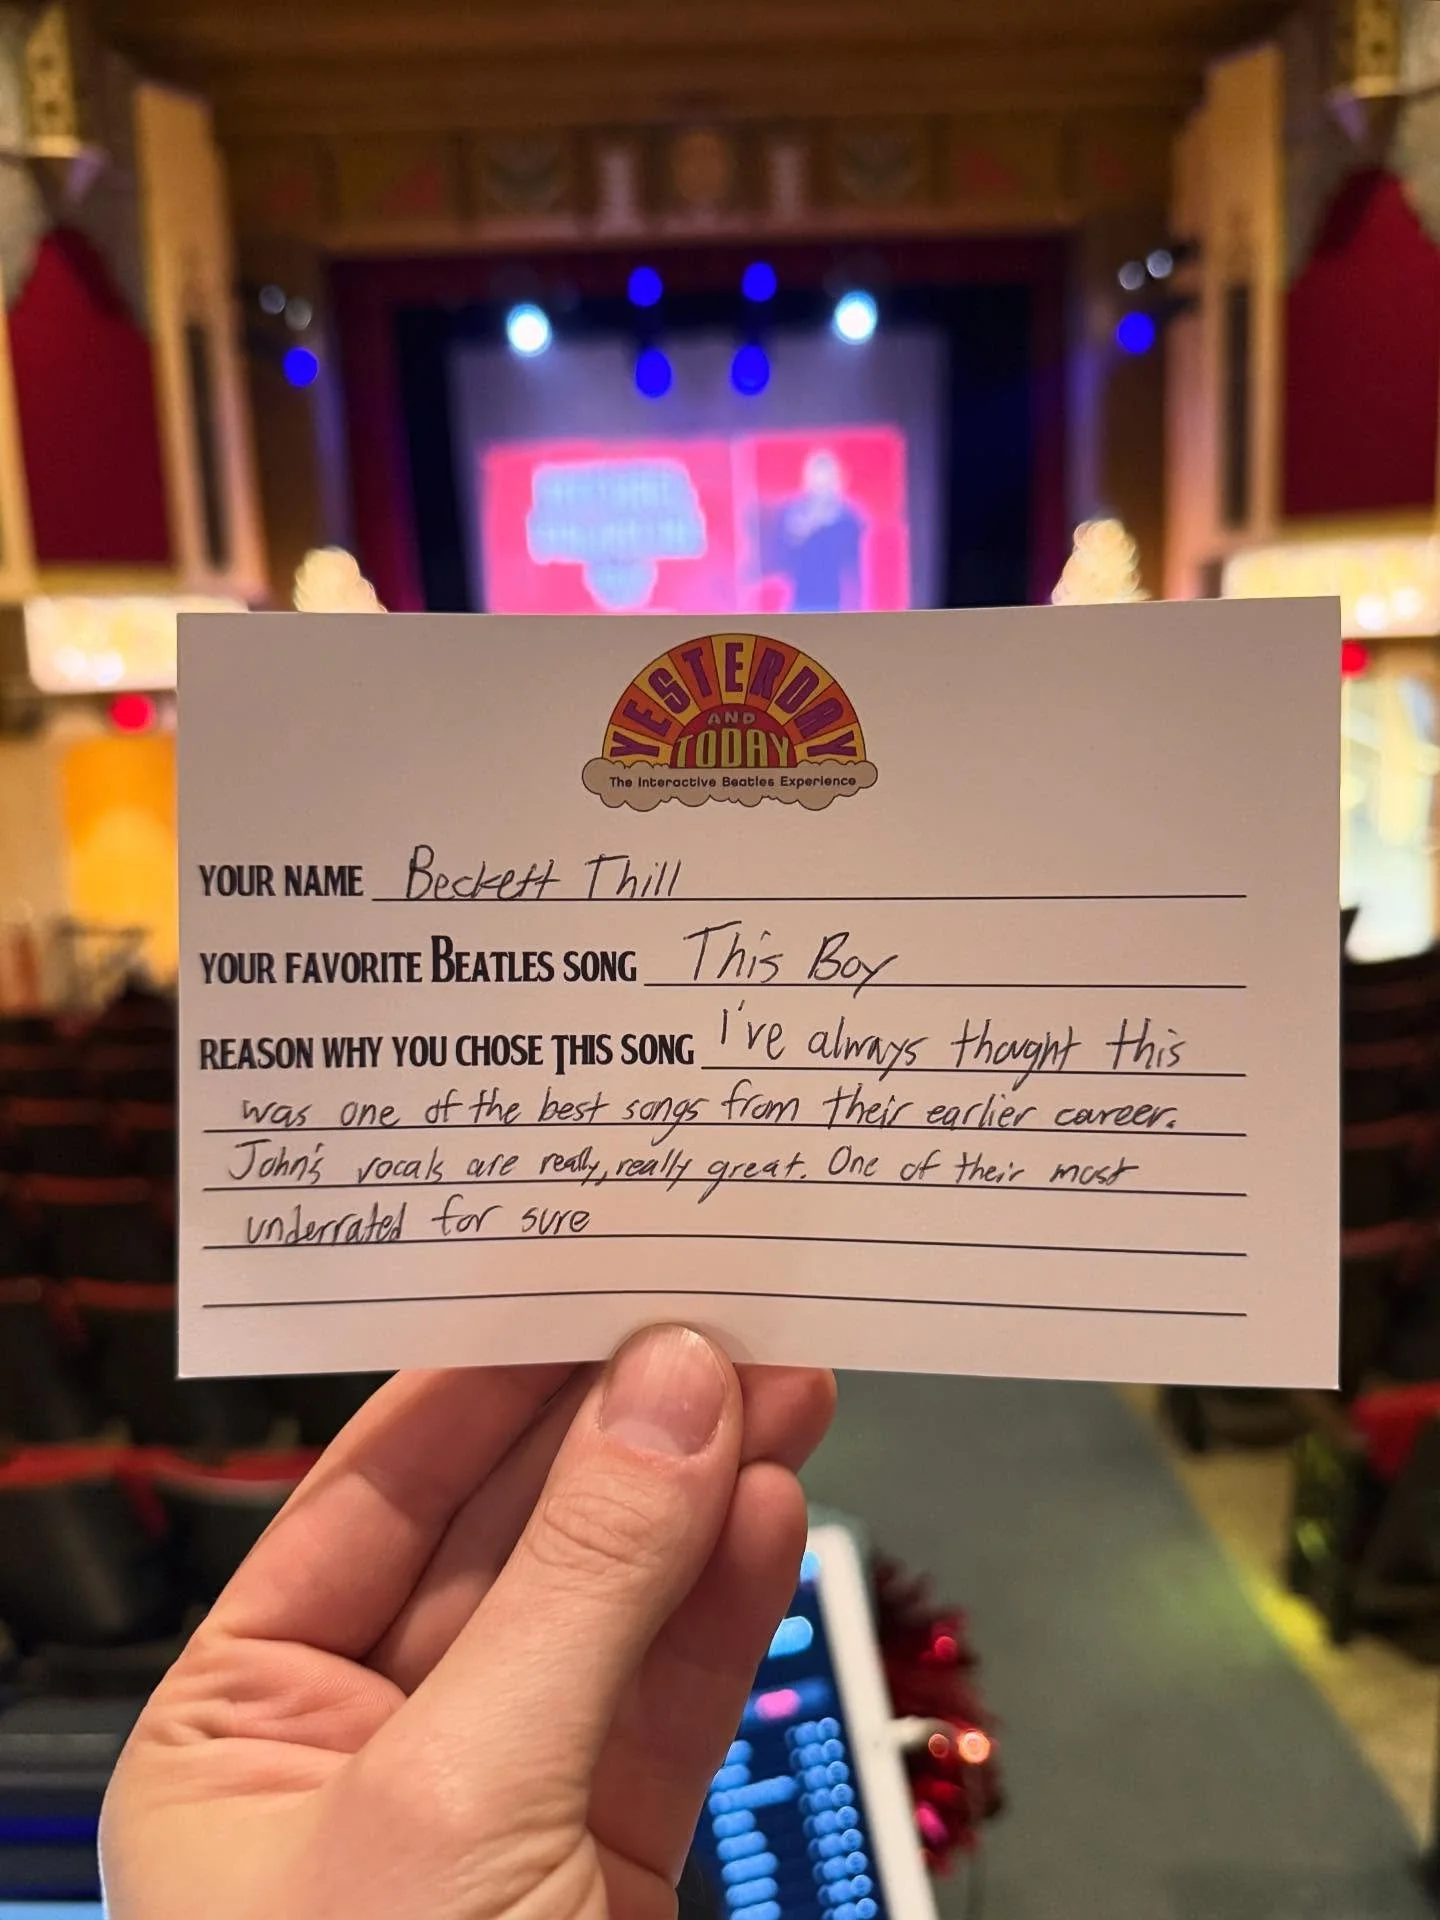 YESTERDAY
AND
TODAY
The Interactive Beatles Experience
YOUR NAME Beckett Thill
YOUR FAVORITE BEATLES SONG This Boy
REASON WHY YOU CHOSE THIS SONG I've always thought this
was one of the best songs from their earlier career.
John's vocals are really, really great. One of their most
underrated for sure